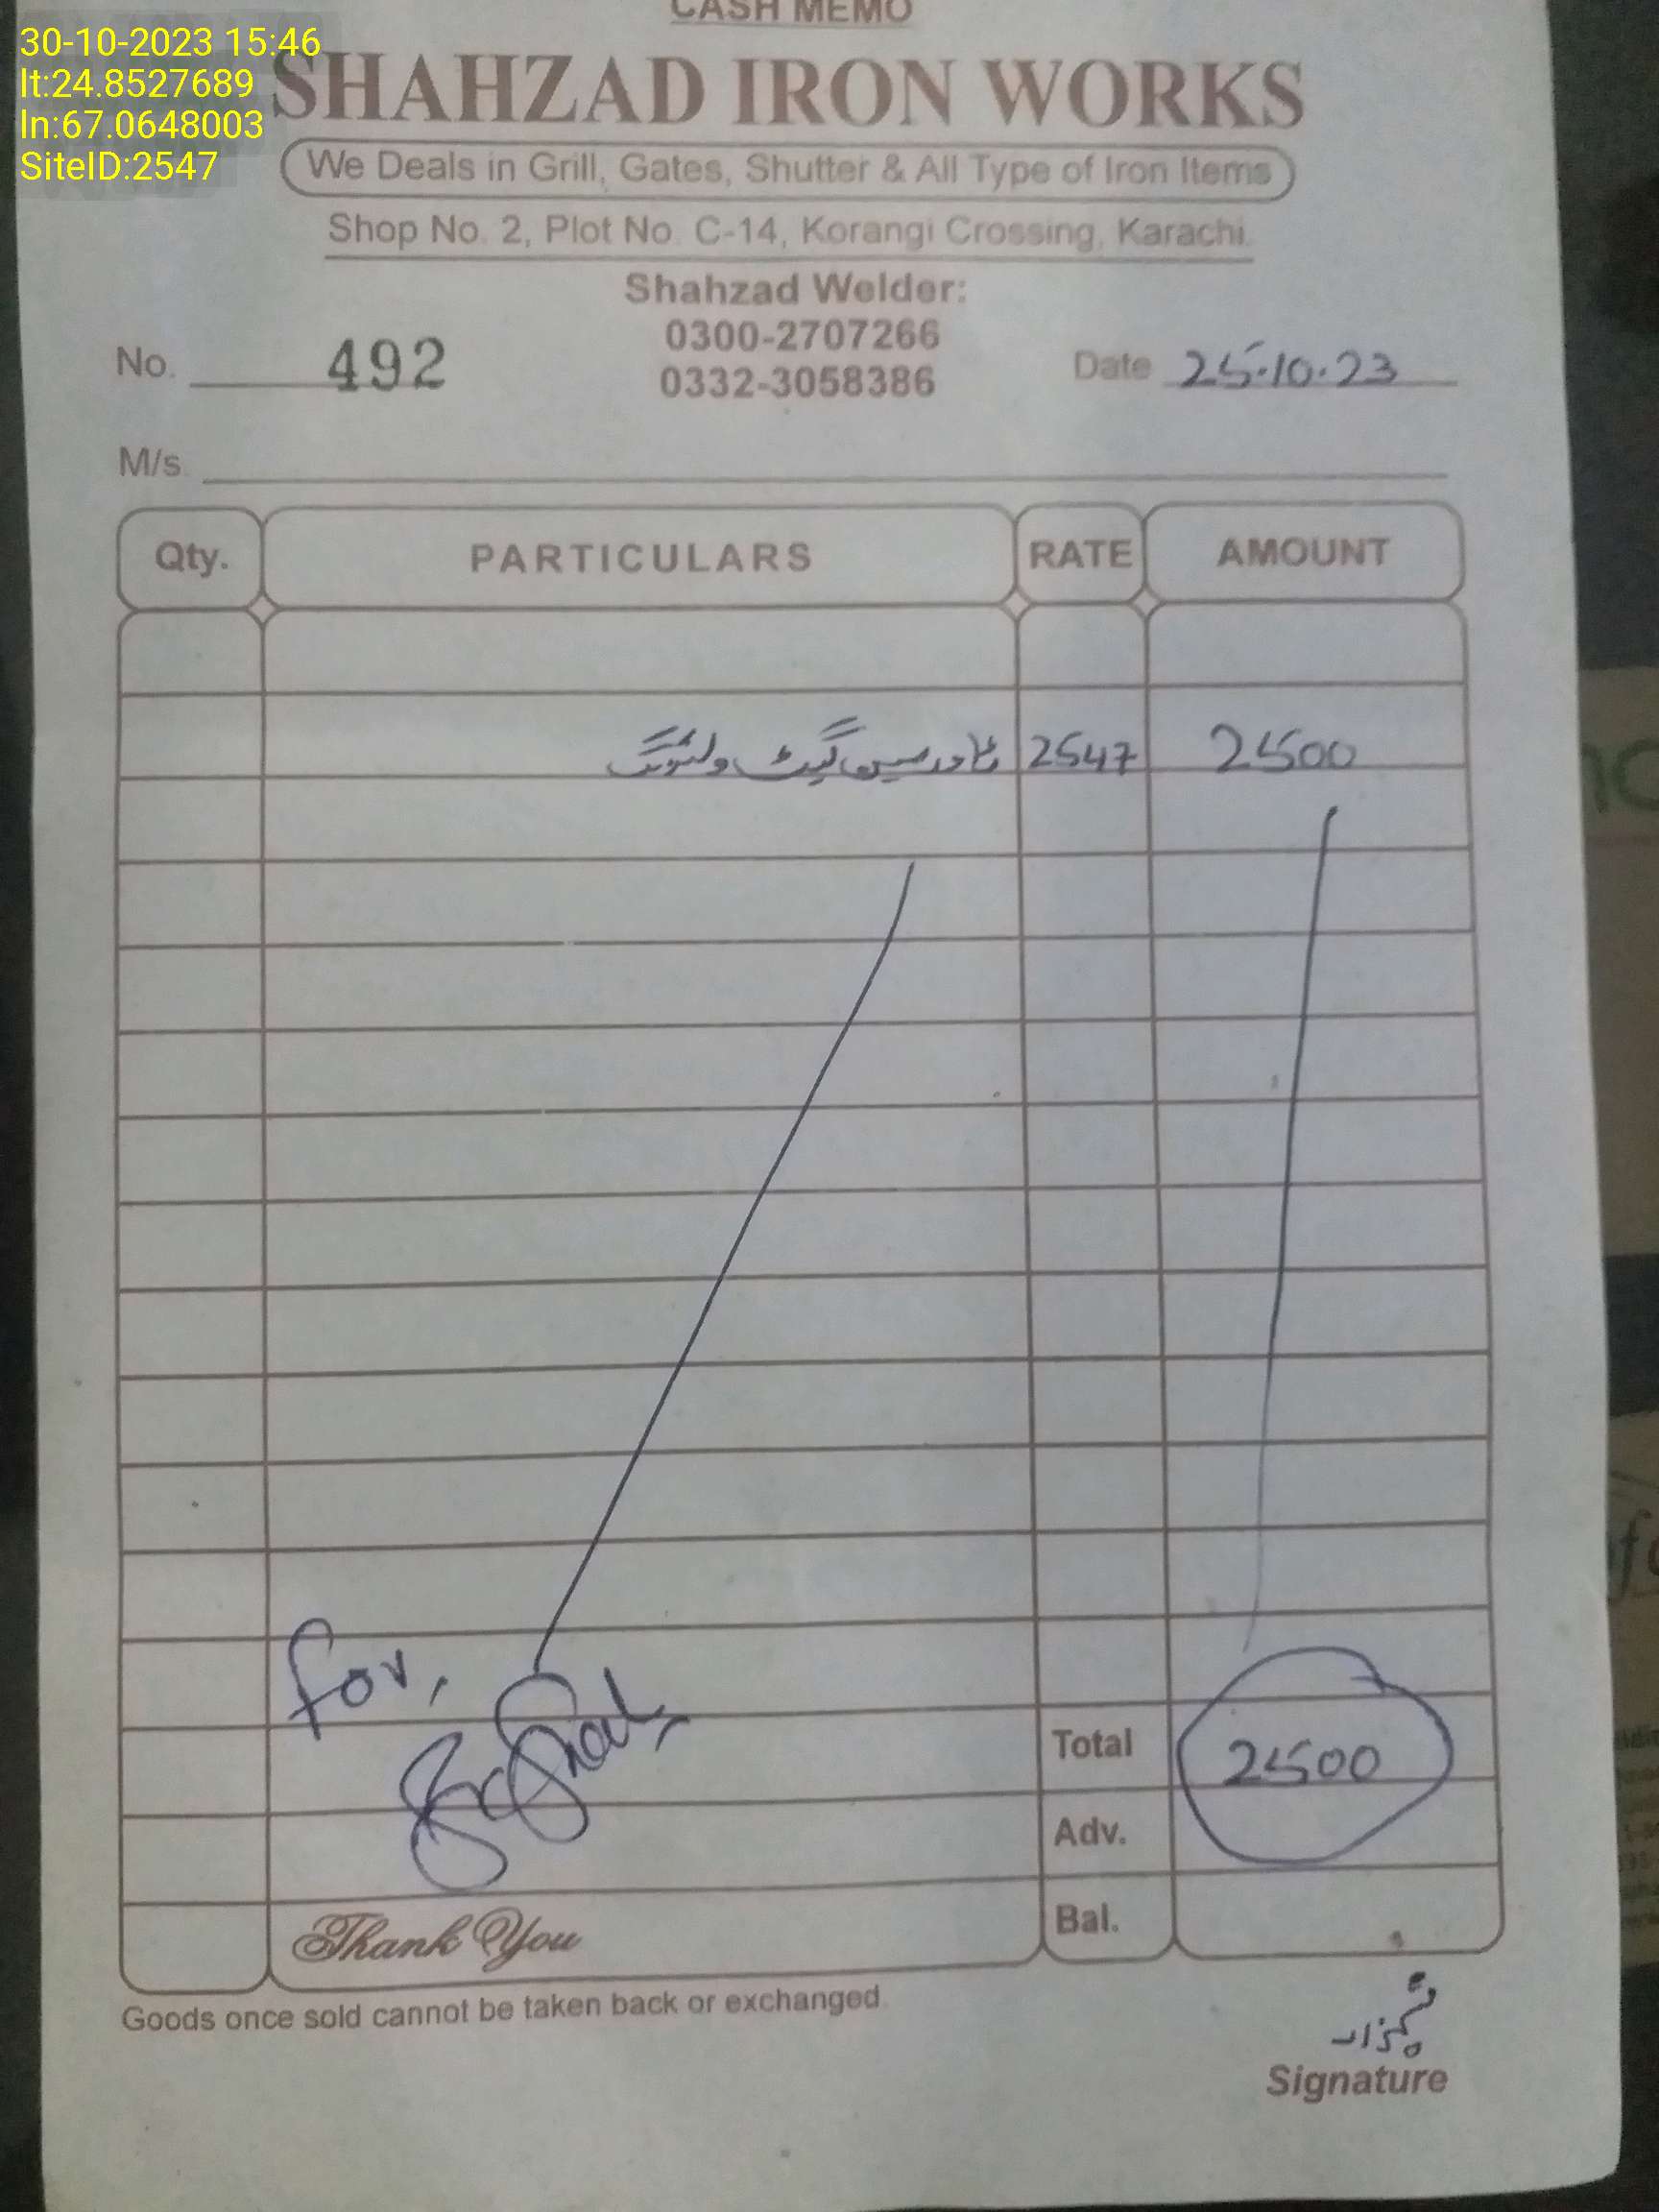 30-10-2023 15:46
lt:24.8527689
ln:67.0648003
SiteID:2547
CASH MEMO
SHAHZAD IRON WORKS
We Deals in Grill, Gates, Shutter & All Type of Iron Items
Shop No. 2, Plot No. C-14, Korangi Crossing, Karachi.
Shahzad Welder:
0300-2707266
0332-3058386
No. 492
Date 25.10.23
M/s.
Qty. PARTICULARS RATE AMOUNT
گیٹ 2547 2500
for,
Total 2500
Adv.
Bal.
Thank You
Goods once sold cannot be taken back or exchanged.
Signature